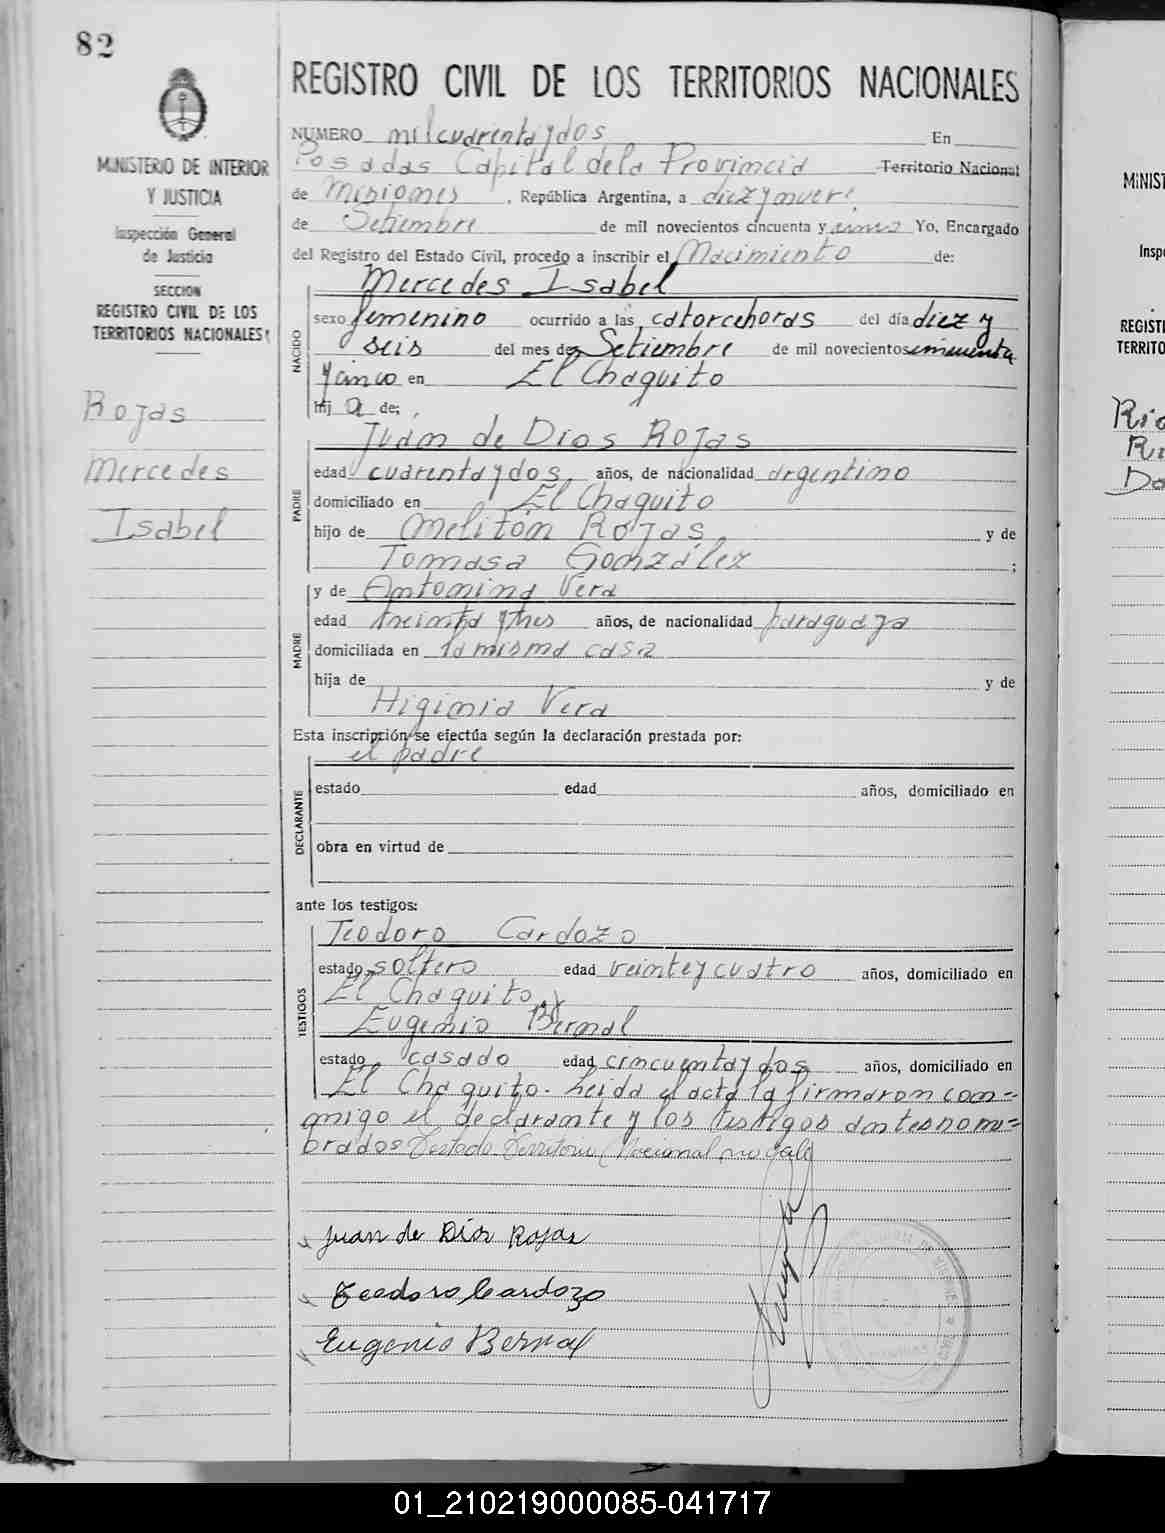 82
MINISTERIO DE INTERIOR
Y JUSTICIA
Inspección General
de Justicia
SECCION
REGISTRO CIVIL DE LOS
TERRITORIOS NACIONALES
Rojas
Mercedes
Isabel
REGISTRO CIVIL DE LOS TERRITORIOS NACIONALES
NUMERO mil cuarenta y dos En
Posadas Capital de la Provincia Territorio Nacional
de Misiones, República Argentina, a diez y nueve
de Setiembre de mil novecientos cincuenta y cinco Yo, Encargado
del Registro del Estado Civil, procedo a inscribir el Nacimiento de:
NACIDO
Mercedes Isabel
sexo femenino ocurrido a las catorce horas del día diez y
seis del mes de Setiembre de mil novecientos cincuenta
y cinco en El Chaquito
hij a de:
PADRE
Juan de Dios Rojas
edad cuarenta y dos años, de nacionalidad argentino
domiciliado en El Chaquito
hijo de Melitón Rojas y de
Tomasa González ;
MADRE
y de Antonina Vera
edad treinta y tres años, de nacionalidad paraguaya
domiciliada en la misma casa
hija de y de
Higinia Vera
Esta inscripción se efectúa según la declaración prestada por:
el padre
DECLARANTE
estado edad años, domiciliado en
obra en virtud de
ante los testigos:
TESTIGOS
Teodoro Cardozo
estado soltero edad veinte y cuatro años, domiciliado en
El Chaquito y
Eugenio Bernal
estado casado edad cincuenta y dos años, domiciliado en
El Chaquito. Leida el acta la firmaron con-
migo el declarante y los testigos antes nom-
brados Testado Territorio Nacional no vale
Juan de Dios Rojas
Teodoro Cardozo
Eugenio Bernal
MINIST
Inspe
REGISTI
TERRITO
01_210219000085-041717